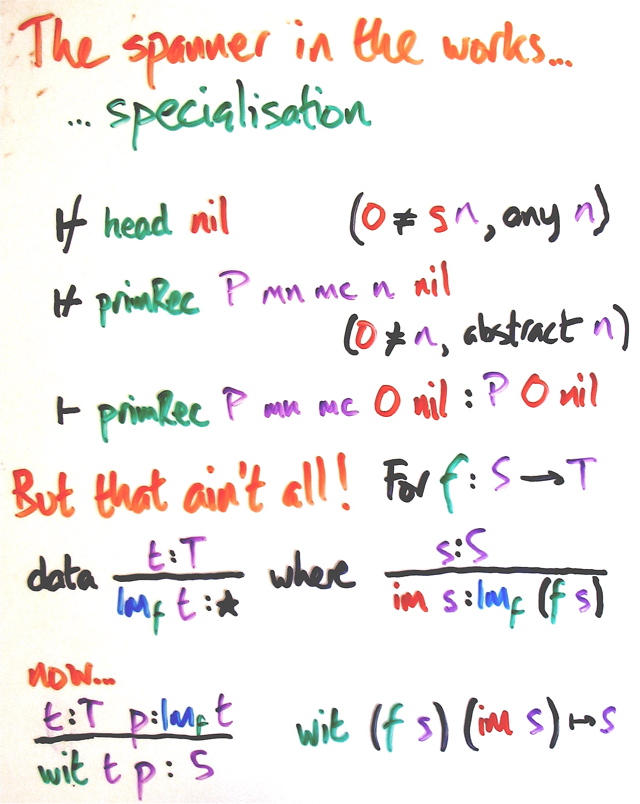 The spanner in the works...
... specialisation
⊬ head nil (O ≠ s n, any n)
⊬ primRec P mn mc n nil
(O ≠ n, abstract n)
⊢ primRec P mn mc O nil : P O nil
But that ain't all! For f : S → T
data t:T where s:S
Im_f t : ★ im s : Im_f (f s)
now...
t:T p:Im_f t wit (f s) (im s) ↦ s
wit t p : S